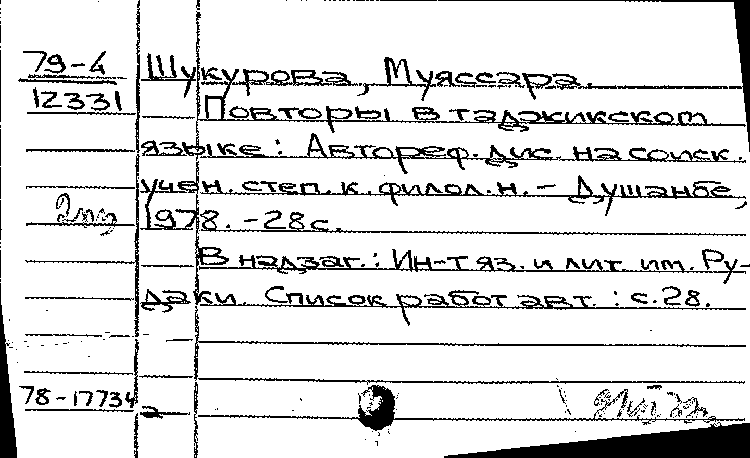 79-4 Шукурова, Муяссара.
12331 Повторы в таджикском
языке: Автореф. дис. на соиск.
учен. степ. к. филол. н. - Душанбе,
1978. - 28 с.
В надзаг.: Ин-т яз. и лит. им. Ру-
даки. Список работ авт.: с. 28.
78-17734